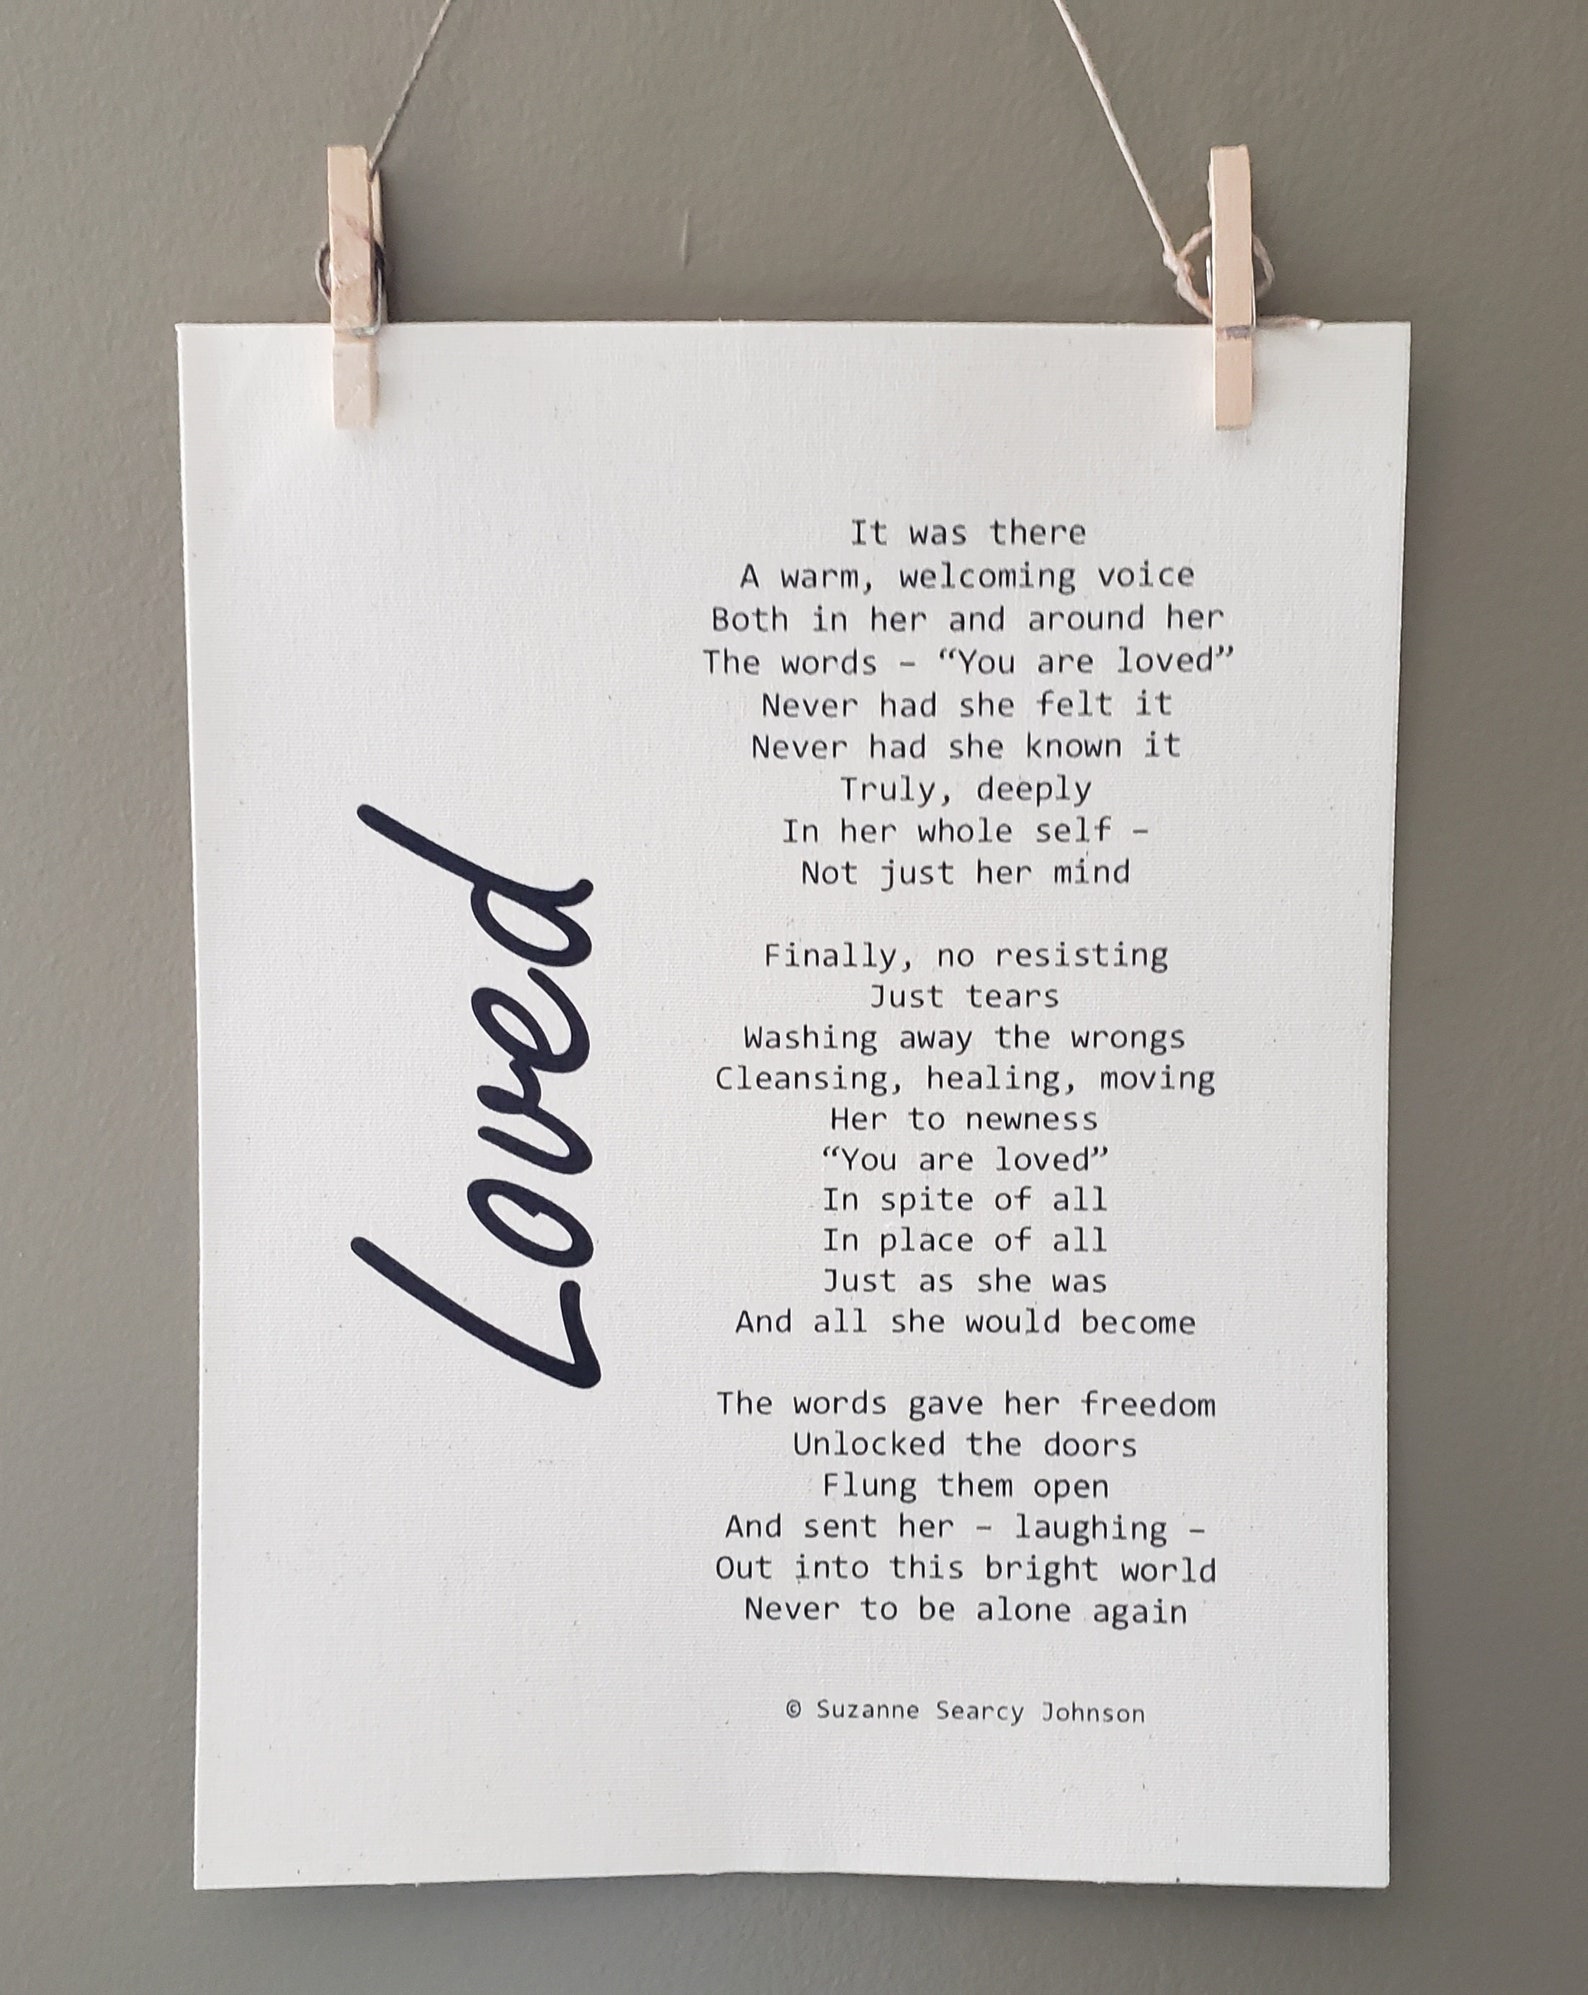 Loved
It was there
A warm, welcoming voice
Both in her and around her
The words – “You are loved”
Never had she felt it
Never had she known it
Truly, deeply
In her whole self –
Not just her mind
Finally, no resisting
Just tears
Washing away the wrongs
Cleansing, healing, moving
Her to newness
“You are loved”
In spite of all
In place of all
Just as she was
And all she would become
The words gave her freedom
Unlocked the doors
Flung them open
And sent her – laughing –
Out into this bright world
Never to be alone again
© Suzanne Searcy Johnson